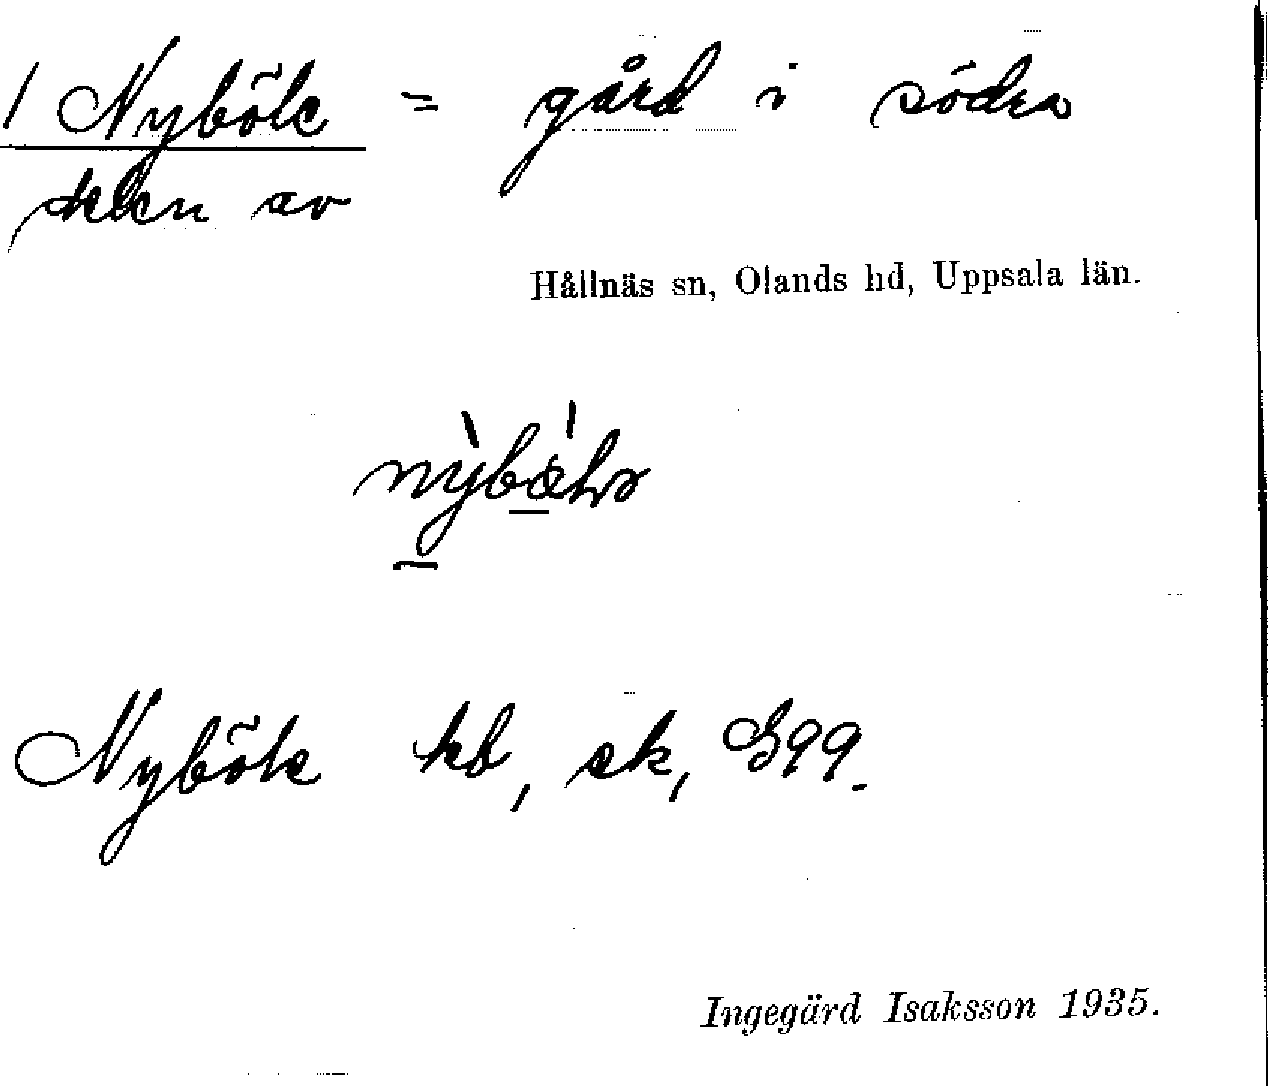 1 Nyböle = gård i södra
delen av
Hållnäs sn, Olands hd, Uppsala län.
Nyböle kb, sk, G99.
Ingegärd Isaksson 1935.